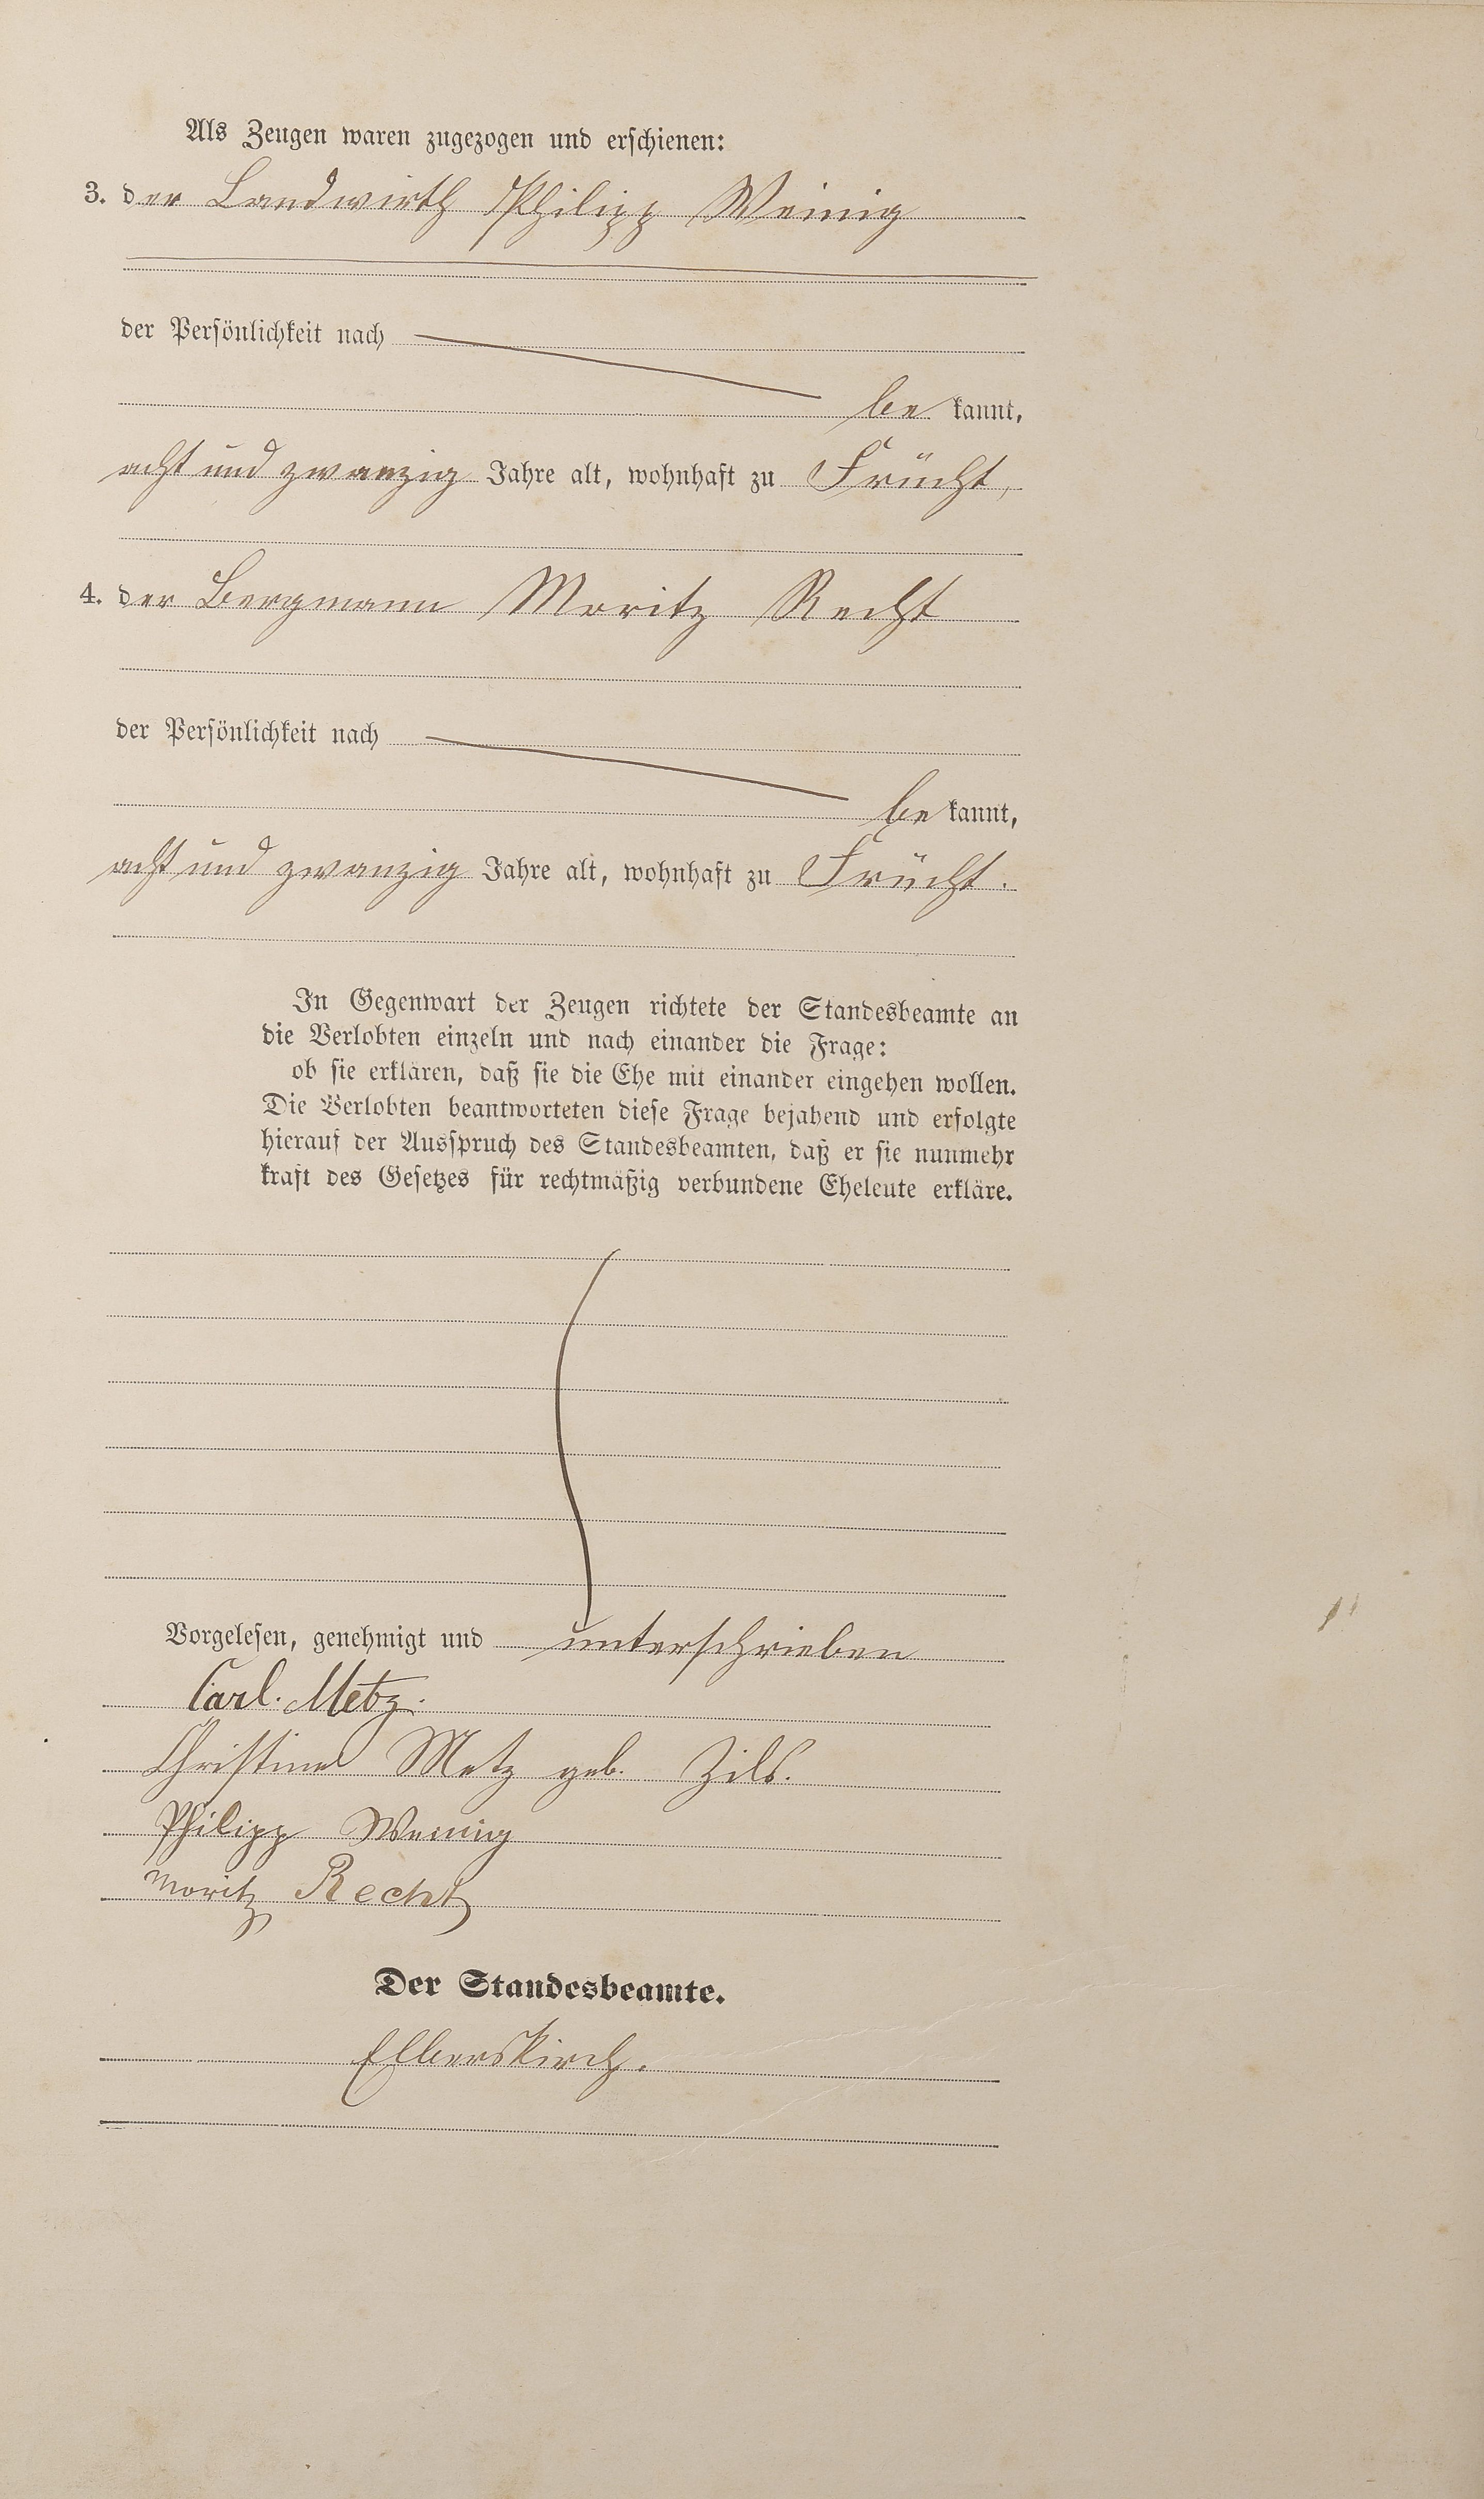 Als Zeugen waren zugezogen und erschienen:
3. der Landwirth Philipp Weinig
der Persönlichkeit nach
be kannt,
acht und zwanzig Jahre alt, wohnhaft zu Frücht,
4. der Bergmann Moritz Recht
der Persönlichkeit nach
be kannt,
acht und zwanzig Jahre alt, wohnhaft zu Frücht.
In Gegenwart der Zeugen richtete der Standesbeamte an
die Verlobten einzeln und nach einander die Frage:
ob sie erklären, daß sie die Ehe mit einander eingehen wollen.
Die Verlobten beantworteten diese Frage bejahend und erfolgte
hierauf der Ausspruch des Standesbeamten, daß er sie nunmehr
kraft des Gesetzes für rechtmäßig verbundene Eheleute erkläre.
Vorgelesen, genehmigt und unterschrieben
Carl. Metz.
Christine Metz geb. Zils.
Philipp Weinig
Moritz Recht
Der Standesbeamte.
Elberskirch.